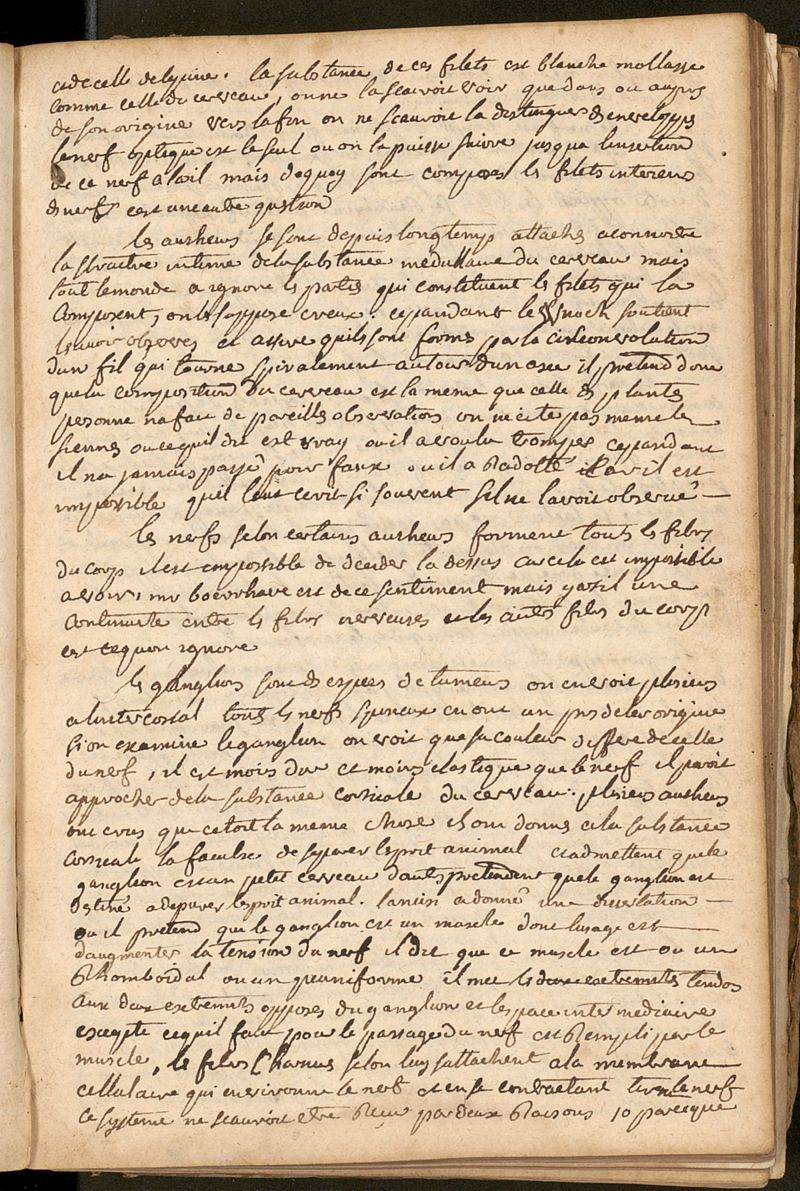 et de celle de lepine. la substance de ces filets est blanche mollasse
comme celle du cerveau, on ne la scauroit voir que dans ou aupres
de son origine vers la fin on ne scauroit la distinguer des enveloppes
le nerf optique est le seul ou on la puisse suivre jusqua linsertion
de ce nerf a loeil mais dequoy sont composes les filets interieurs
des nerfs cest une autre question
les autheurs se sont depuis longtemps attachés a connoitre
la structure intime de la substance medullaire du cerveau mais
tout le monde a ignoré les parties qui constituent les filets qui la
composent, on les suppose creux. cependant le soutient
les avoir observés et assure quils sont formes par la circonvolution
dun fil qui tourne spiralement autour dun axe il pretend donc
que la composition du cerveau est la meme que celle des plantes
personne na fait de pareilles observations on ne cite pas meme les
siennes ou ce quil dit est vray ou il a voulu tromper cependant
il na jamais passé pour faux ou il a Radotté car il est
impossible quil leut ecrit si souvent sil ne lavoit observé
les nerfs selon certains autheurs forment touts les fibres
du corps il est impossible de decider la dessus car cela est impossible
a voir, mr boerrhave est de ce sentiment mais y a til une
continuité entre les fibres nerveuses et les autres fibres du corps
est ce quon ignore
les ganglions sont des especes de tumeurs on en voit plusieurs
a lintercostal touts les nerfs spineaux en ont un pres de leur origine
si on examine le ganglion on voit que sa couleur differe de celle
du nerf, il est moins dur et moins elastique que le nerf il paroit
approcher de la substance corticale du cerveau. plusieurs autheurs
ont crus que cetoit la meme chose ils ont donnés a la substance
corticale la faculté de separer lesprit animal et admettent que le
ganglion est un petit cerveau dautres pretendent que le ganglion est
destiné a depurer lesprit animal. lancisi a donné une dissertation
ou il pretend que le ganglion est un muscle dont lusage est
daugmenter la tension du nerf il dit que ce muscle est ou un
Rhomboidal ou un peniforme il met les deux extremités tendos
aux deux extremités opposes du ganglion et lespace intermediaire
excepté ce quil faut pour le passage du nerf est Rempli par le
muscle, les fibres Charnus selon luy sattachent a la membrane
cellulaire qui environne le nerf et en se contractant tire le nerf
ce systeme ne scauroit etre Recu par deux Raisons 1o parceque